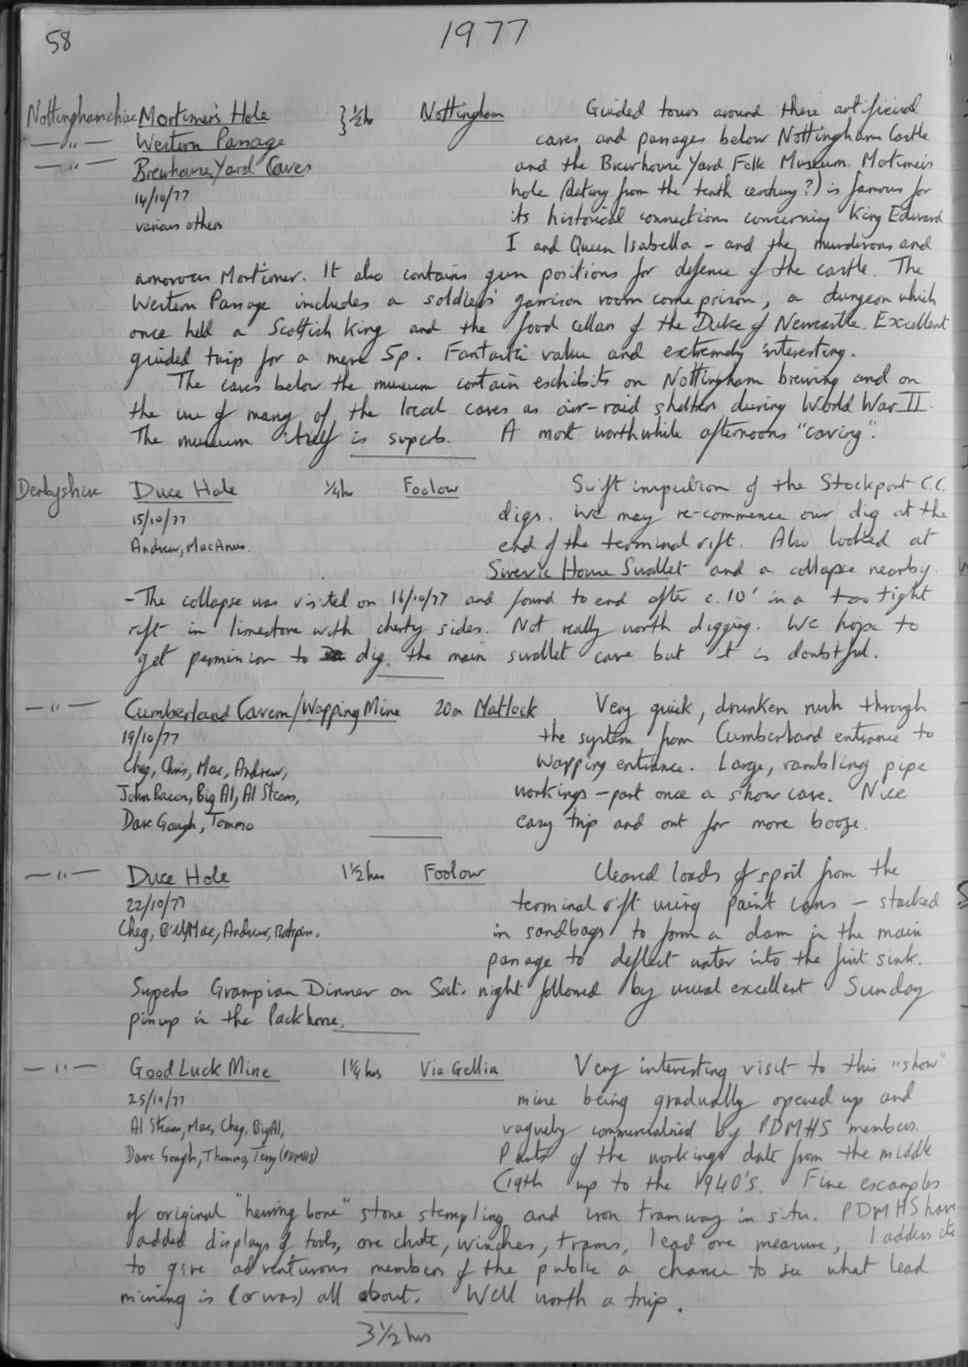 58
1977
Nottinghamshire Mortimer's Hole } 1/2 hr Nottingham Guided tours around these artificial
— " — Western Passage caves and passages below Nottingham Castle
— " — Brewhouse Yard Caves and the Brewhouse Yard Folk Museum. Mortimer's
14/10/77 hole (dating from the tenth century?) is famous for
various others its historical connections concerning King Edward
I and Queen Isabella - and the murderous and
amorous Mortimer. It also contains gun positions for defence of the castle. The
Western Passage includes a soldiers' garrison room come prison, a dungeon which
once held a Scottish King and the food cellars of the Duke of Newcastle. Excellent
guided trip for a mere 5p. Fantastic value and extremely interesting.
The caves below the museum contain exhibits on Nottingham brewing and on
the use of many of the local caves as air-raid shelters during World War II.
The museum itself is superb. A most worthwhile afternoons "caving".
Derbyshire Duce Hole 1/4 hr Foolow Swift inspection of the Stockport C.C.
15/10/77 digs. We may re-commence our dig at the
Andrew, Mac, end of the terminal rift. Also looked at
Swevic House Swallet and a collapse nearby.
- The collapse was visited on 16/10/77 and found to end after c. 10' in a too tight
rift in limestone with cherty sides. Not really worth digging. We hope to
get permission to dig the main swallet cave but it is doubtful.
— " — Cumberland Cavern/Wapping Mine 20m Matlock Very quick, drunken rush through
19/10/77 the system from Cumberland entrance to
Cheg, Chris, Mac, Andrew, Wapping entrance. Large, rambling pipe
John Bacon, Big Al, Al Steans, workings - part once a show cave. Nice
Dave Gough, Tommo easy trip and out for more booze.
— " — Duce Hole 1 1/2 hrs Foolow Cleared loads of spoil from the
22/10/77 terminal rift using paint cans - stacked
Cheg, Bill, Mac, Andrew, in sandbags to form a dam in the main
passage to deflect water into the first sink.
Superb Grampian Dinner on Sat. night followed by usual excellent Sunday
pissup in the Packhorse.
— " — Good Luck Mine 1 1/4 hrs Via Gellia Very interesting visit to this "show"
25/10/77 mine being gradually opened up and
Al Steans, Mac, Cheg, Big Al, vaguely commercialised by PDMHS members.
Dave Gough, Thommo, Terry (PDMHS) Parts of the workings date from the middle
C19th up to the 1940's. Fine examples
of original "herring bone" stone stempling and iron tramway in situ. PDMHS have
added displays of tools, ore chute, winches, trams, lead ore measure, ladders etc
to give adventurous members of the public a chance to see what lead
mining is (or was) all about. Well worth a trip.
3 1/2 hrs